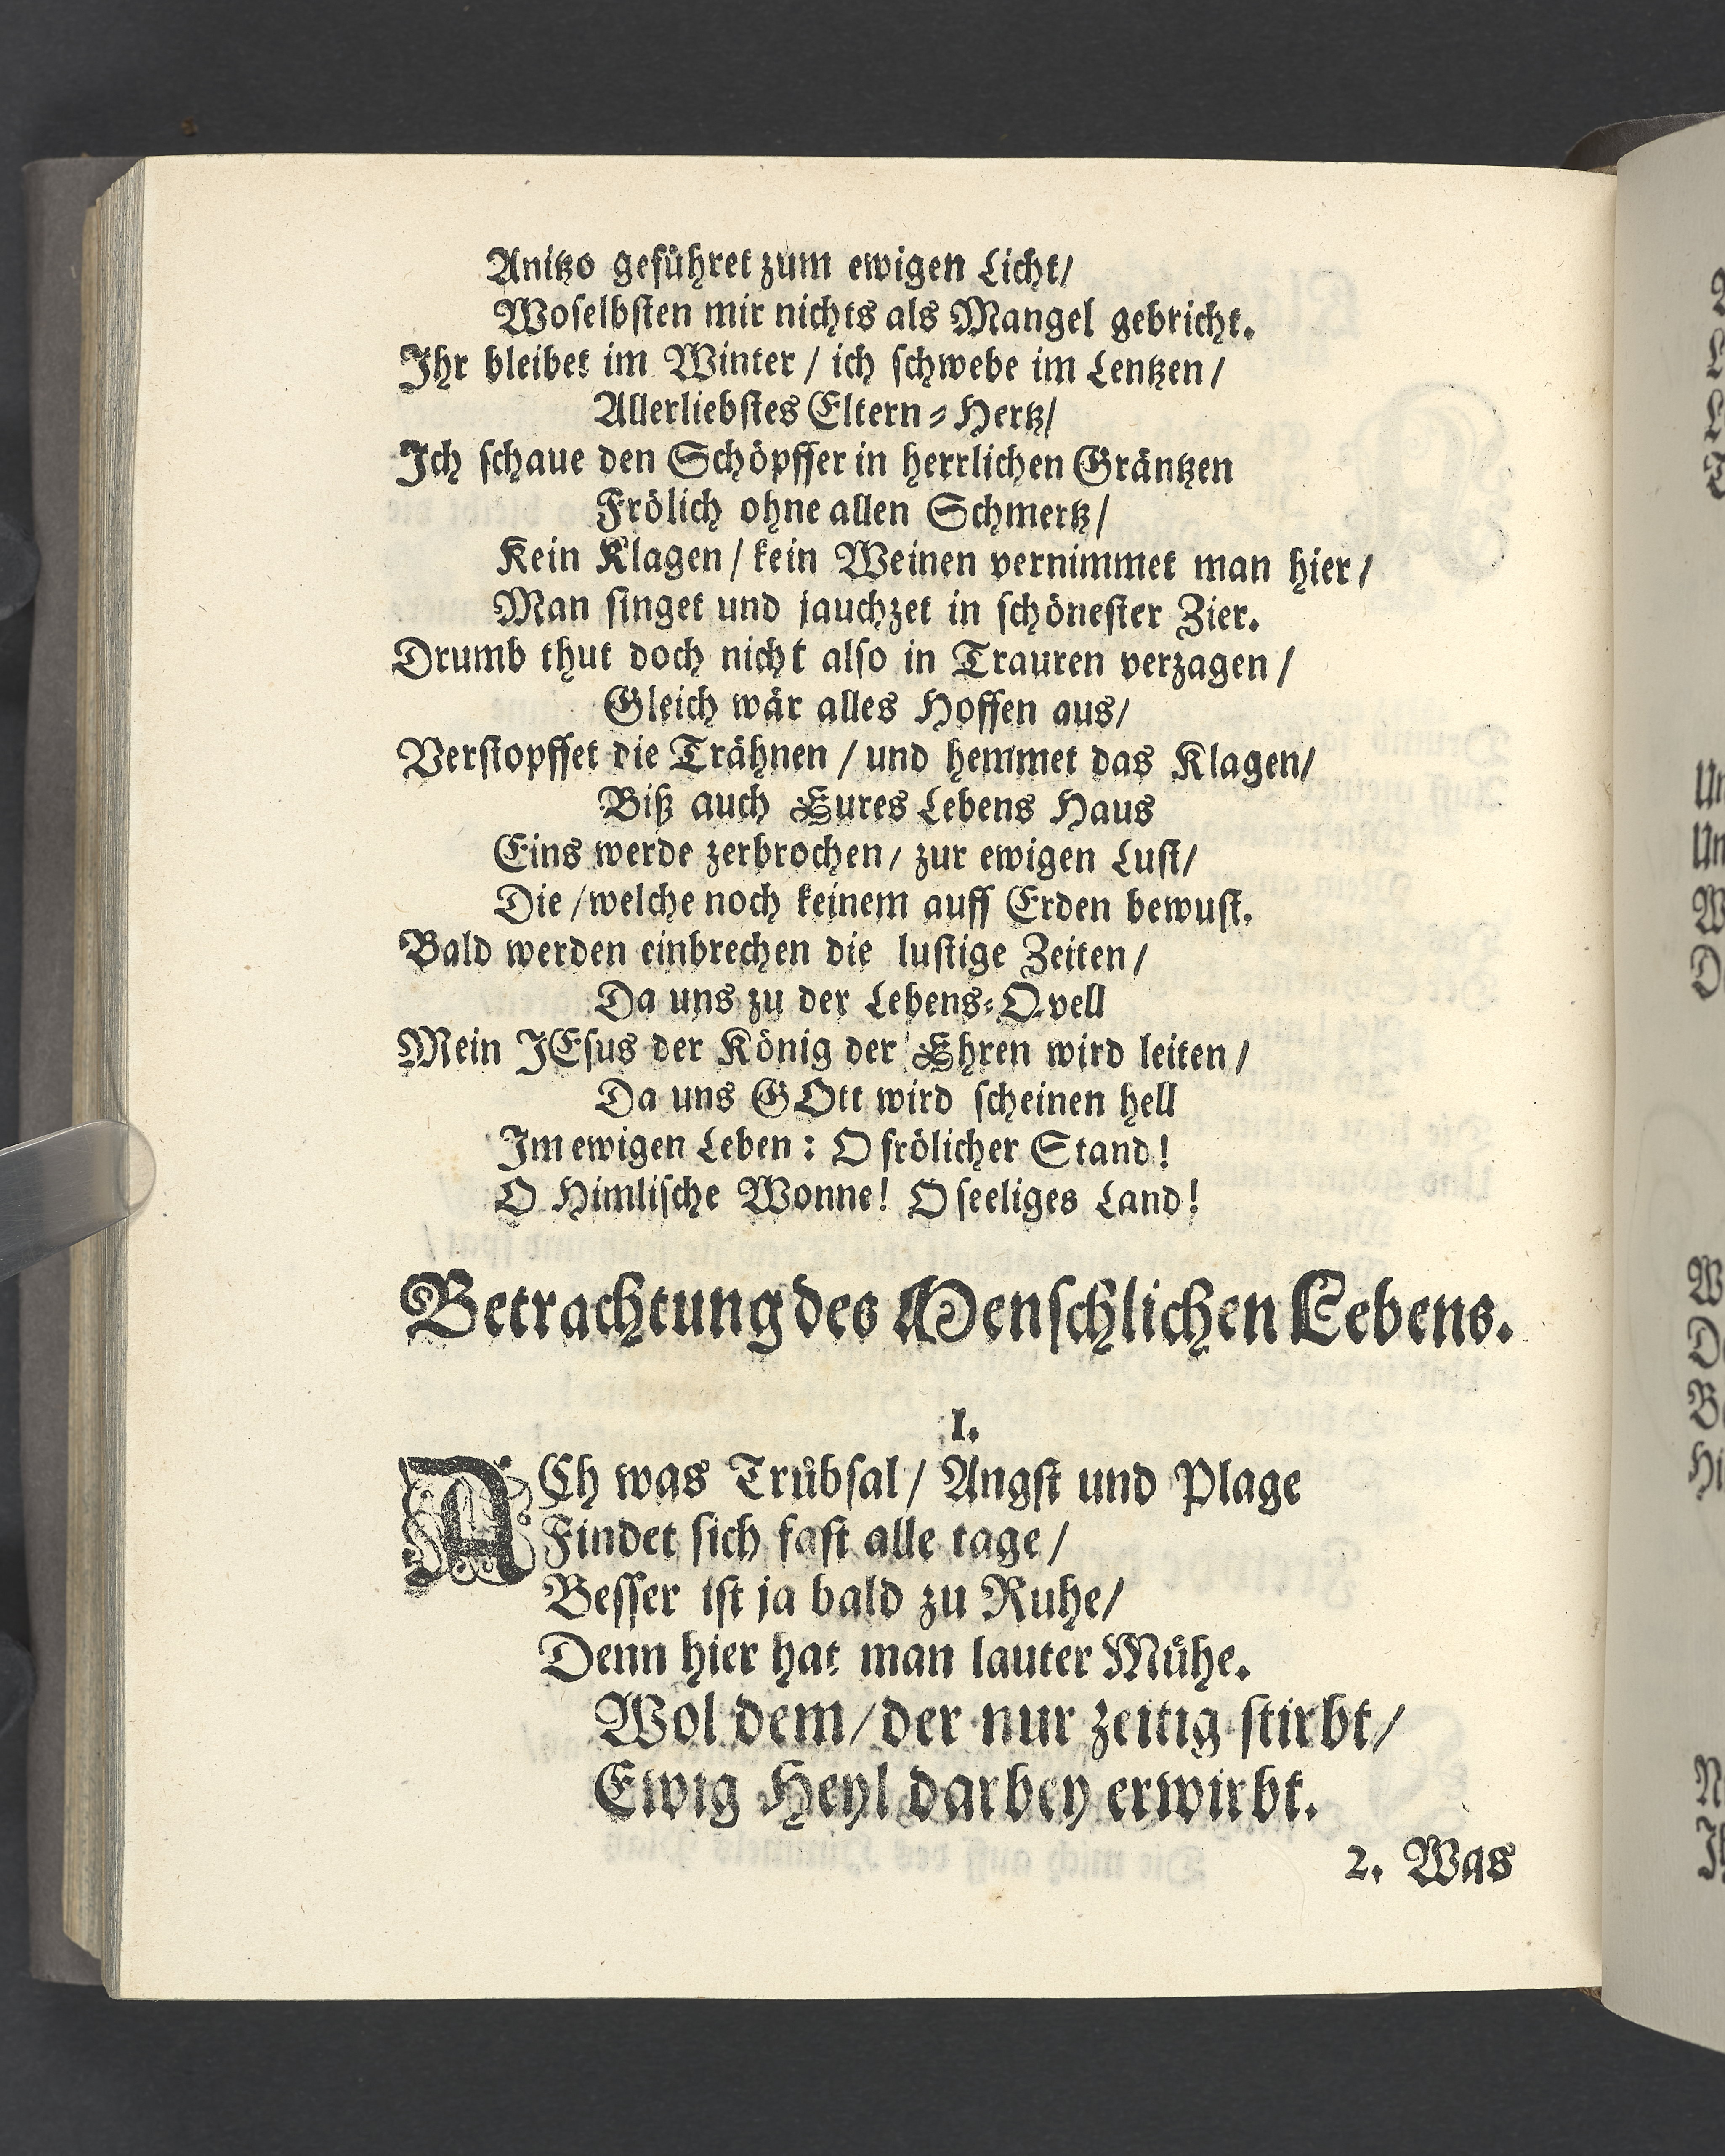 Anitzo geführet zum ewigen Licht/
Woselbsten mir nichts als Mangel gebricht.
Ihr bleibet im Winter / ich schwebe im Lentzen /
Allerliebstes Eltern-Hertz/
Ich schaue den Schöpffer in herrlichen Gräntzen
Frölich ohne allen Schmertz /
Kein Klagen / kein Weinen vernimmet man hier /
Man singet und jauchzet in schönester Zier.
Drumb thut doch nicht also in Trauren verzagen /
Gleich wär alles Hoffen aus/
Verstopffet die Trähnen / und hemmet das Klagen/
Biß auch Eures Lebens Haus
Eins werde zerbrochen / zur ewigen Lust/
Die / welche noch keinem auff Erden bewust.
Bald werden einbrechen die lustige Zeiten /
Da uns zu der Lebens-Qvell
Mein JEsus der König der Ehren wird leiten /
Da uns GOtt wird scheinen hell
Im ewigen Leben: O frölicher Stand!
O Himlische Wonne! O seeliges Land!
Betrachtung des Menschlichen Lebens.
I.
ACh was Trübsal / Angst und Plage
Findet sich fast alle tage /
Besser ist ja bald zu Ruhe/
Denn hier hat man lauter Mühe.
Wol dem / der nur zeitig stirbt /
Ewig Heyl darbey erwirbt.
2. Was